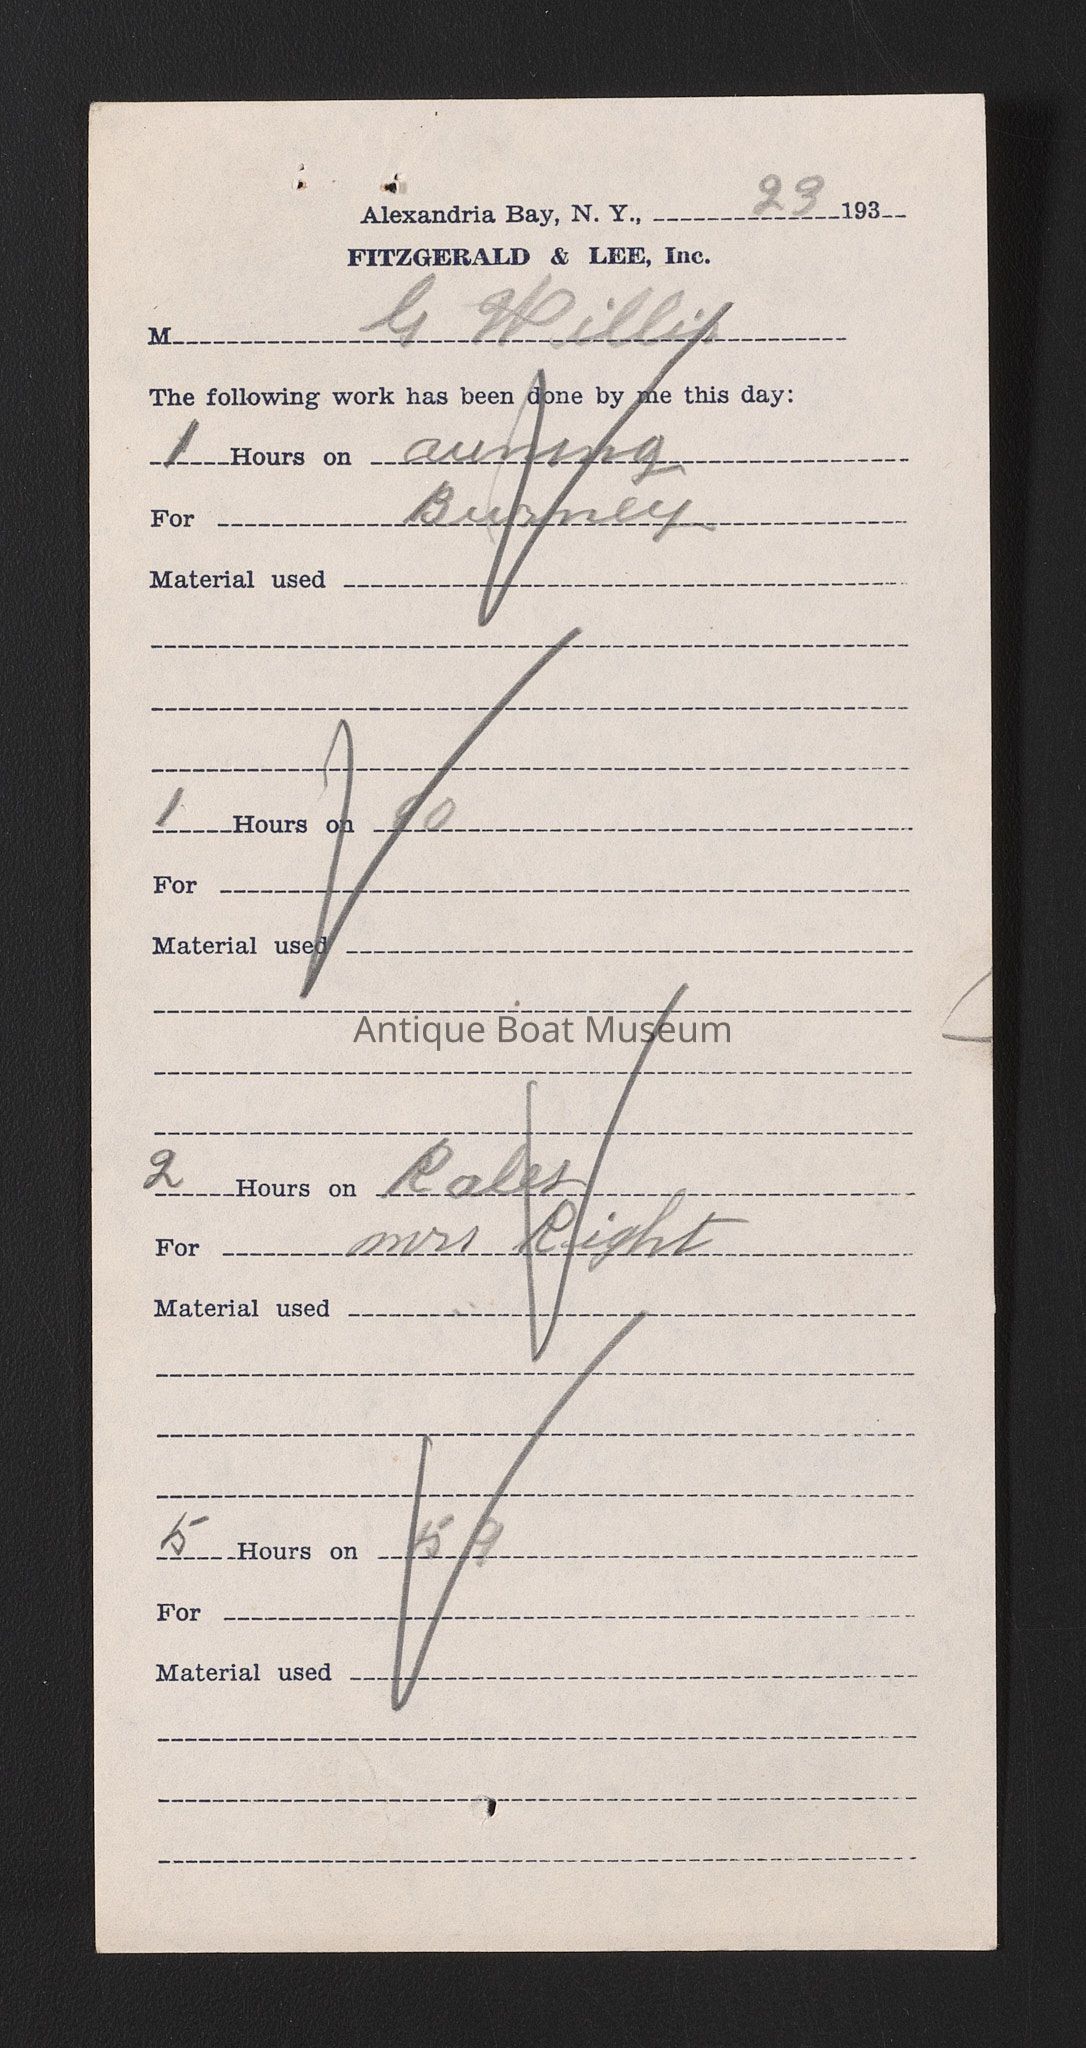 Alexandria Bay, N. Y., 23 193
FITZGERALD & LEE, Inc.
M G Willis
The following work has been done by me this day:
1 Hours on auning
For Burney
Material used
1 Hours on 90
For
Material used
Antique Boat Museum
2 Hours on Rales
For mrs Right
Material used
5 Hours on 59
For
Material used